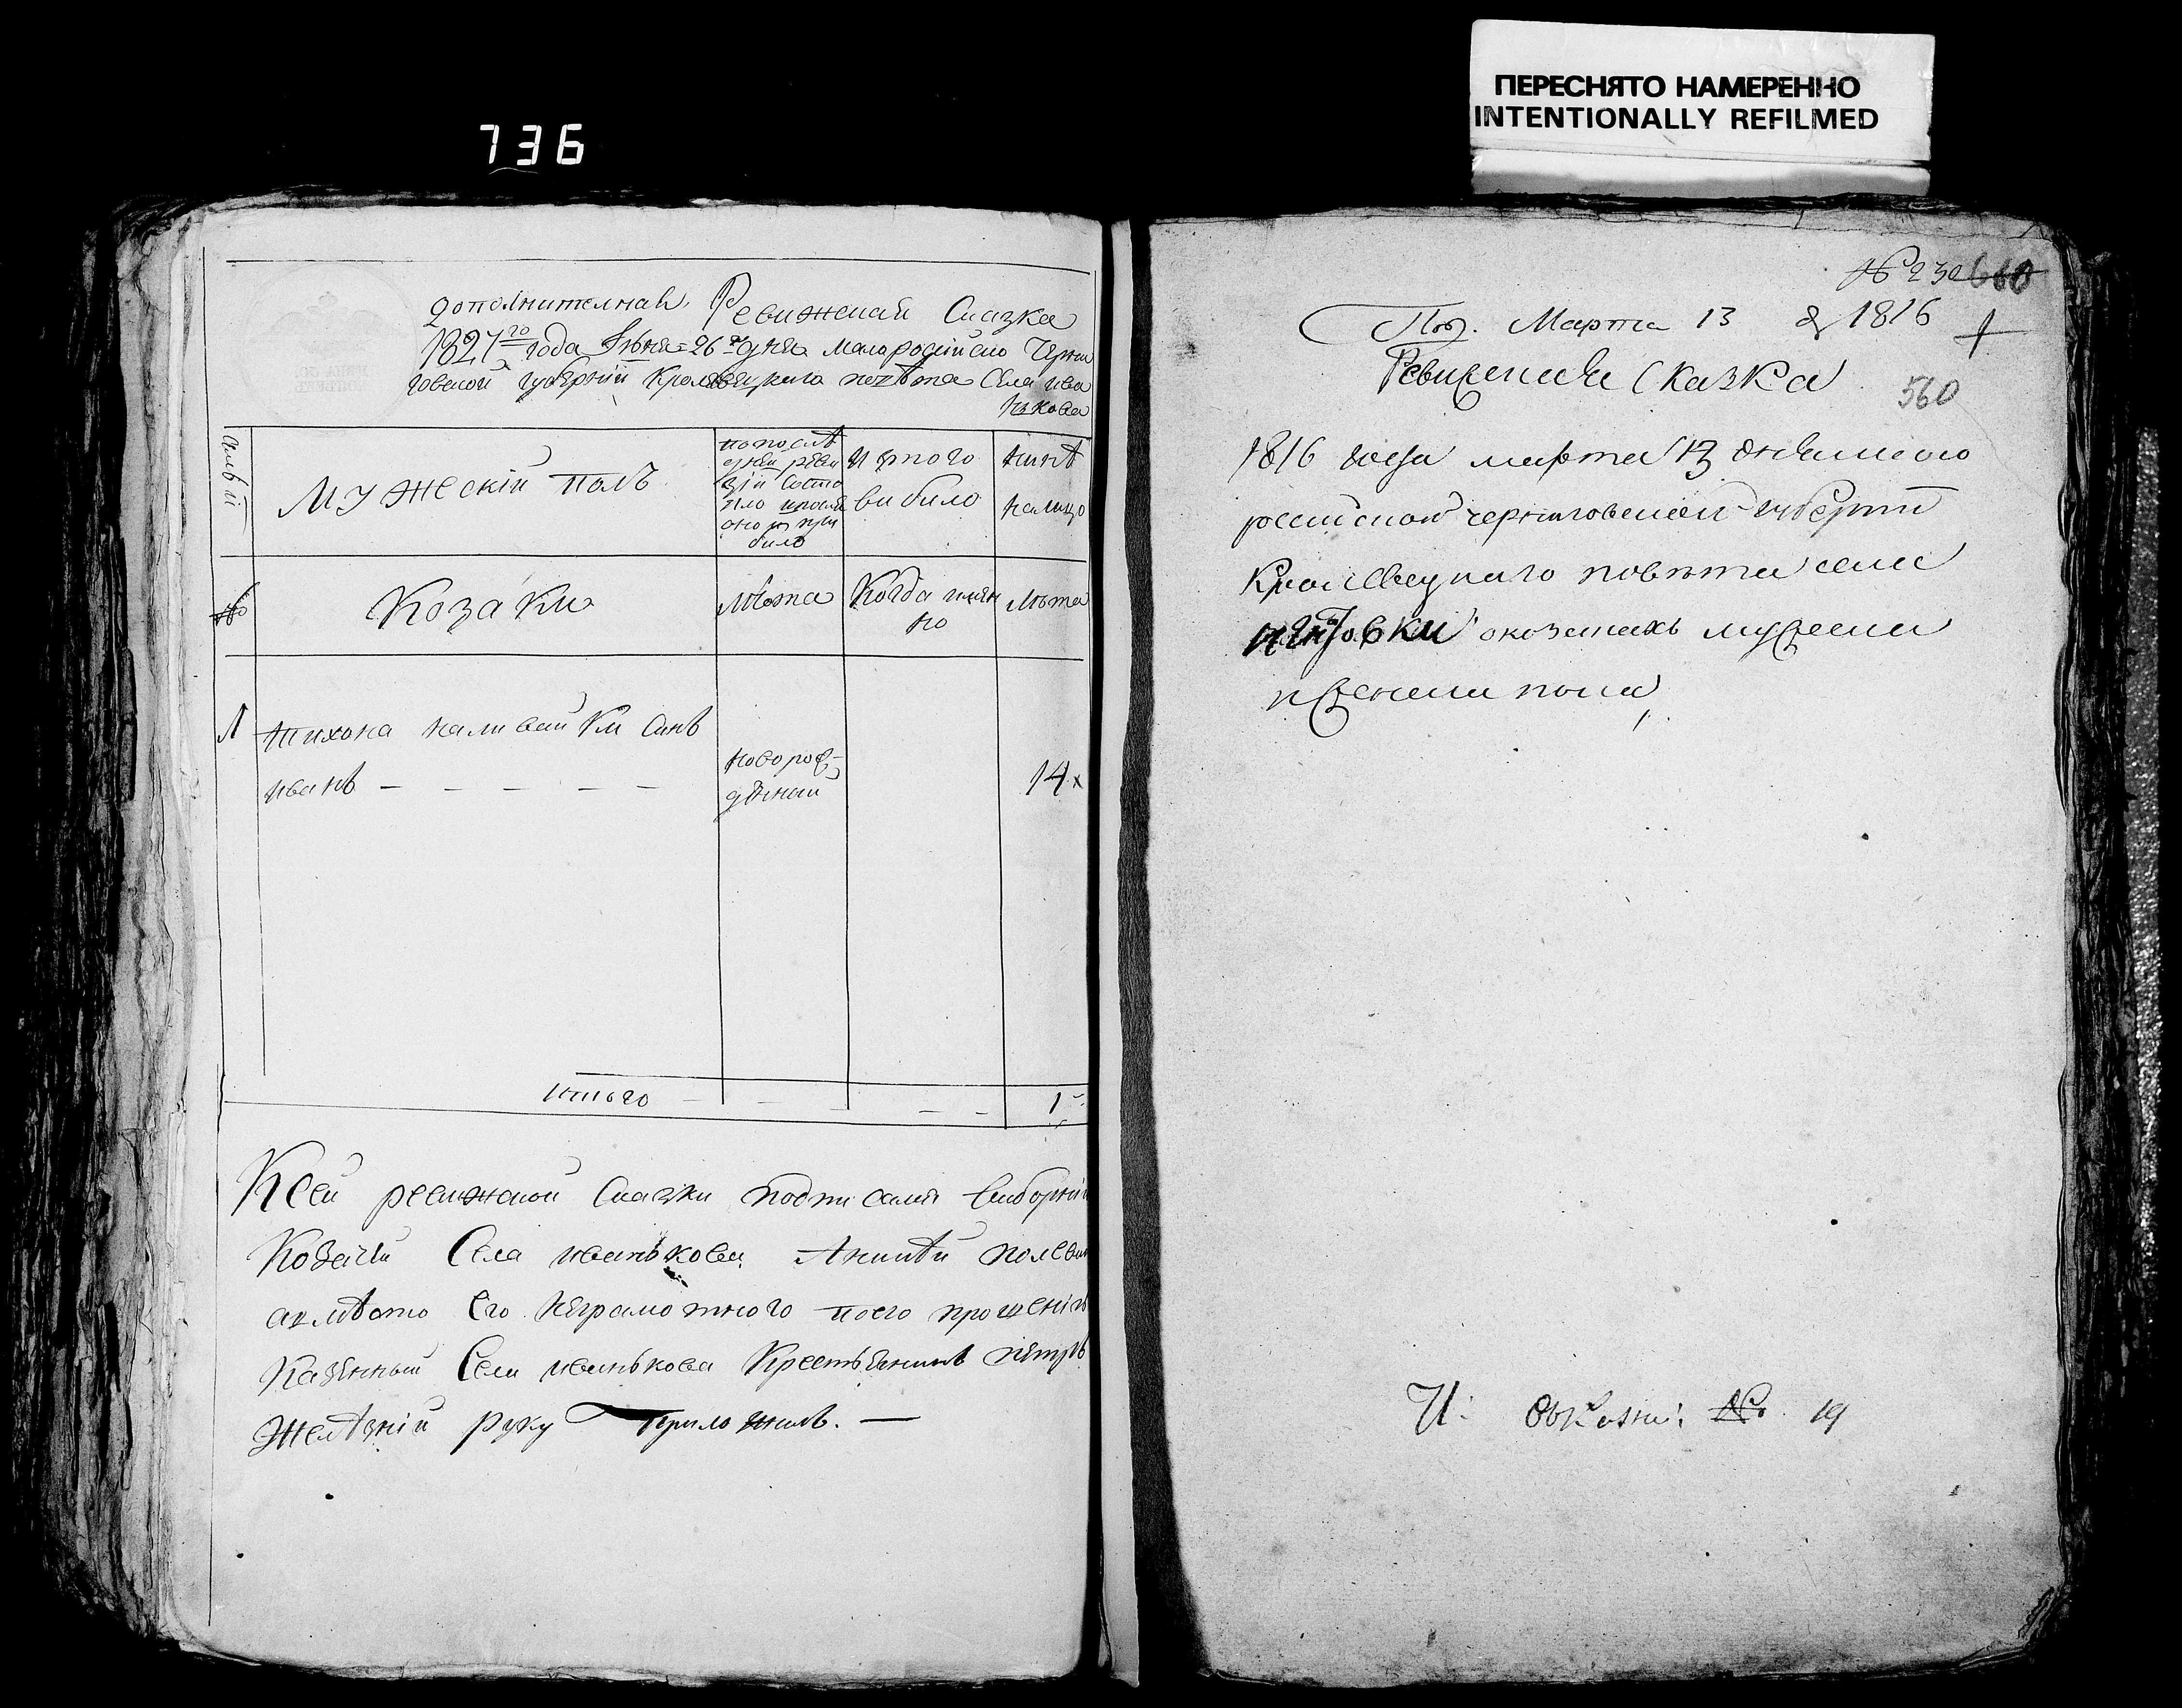 736
ПЕРЕСНЯТО НАМЕРЕННО
INTENTIONALLY REFILMED
дополнителная Ревижская Сказка
182 го года Іюня 26 го дня малоросійско Черни
говской губерніи Кролевецкого повѣта Села ива
нкова
мужескій полъ
по послѣ
дней реви
зіи состо
яло и послѣ
оной при
было
и зтого
вибило
нинѣ
налицо
№
Козаки
Лѣта
Когда имян
но
Лѣта
1
тихона наливайки синъ
иванъ - - - - -
новорож-
дѣнный
14
итого - - - - 1
К сей ревижской Сказки подписался виборній
Козачій Села иванькова
а вмѣсто его неграмотного по его прошенію
Казѣнный Села иванькова Крестьянинъ пѣтръ
руку приложилъ. —
№ 232 660
Пол. Марта 13 д 1816
Ревизская Сказка
560
1816 года марта 13 дня мало
российской черниговской губернии
Кролевецкого повѣта села
мужеска
и женска пола
И: №. 19